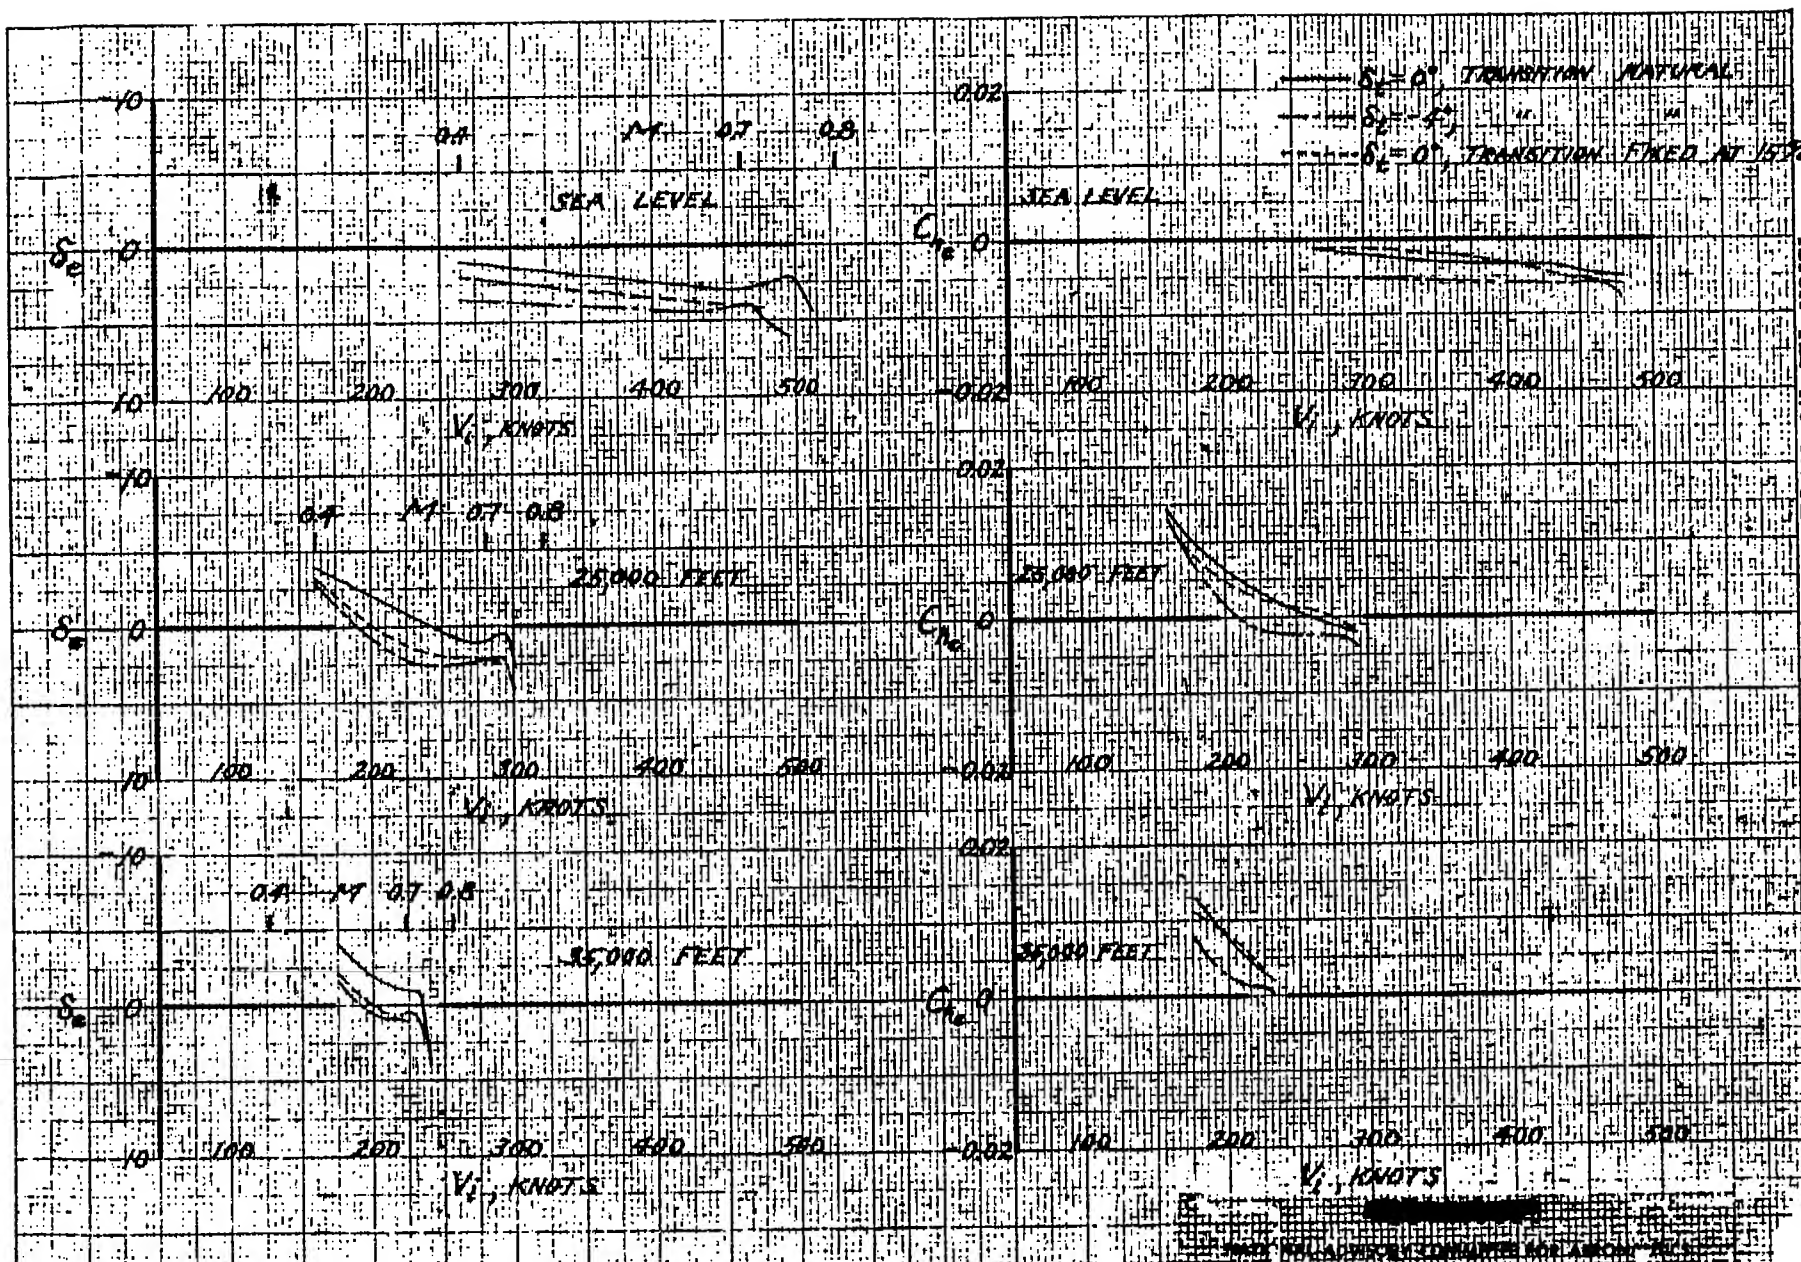 δt = 0°, TRANSITION NATURAL
δt = -4°, " "
δt = 0°, TRANSITION FIXED AT 15%
-10
0.4 M 0.7 0.8
SEA LEVEL
δe 0
10 100 200 300 400 500
Vi, KNOTS
0.02
SEA LEVEL
Che 0
-0.02 100 200 300 400 500
Vi, KNOTS
-10
0.4 M 0.7 0.8
25,000 FEET
δe 0
10 100 200 300 400 500
Vi, KNOTS
0.02
25,000 FEET
Che 0
-0.02 100 200 300 400 500
Vi, KNOTS
-10
0.4 M 0.7 0.8
35,000 FEET
δe 0
10 100 200 300 400 500
Vi, KNOTS
0.02
35,000 FEET
Che 0
-0.02 100 200 300 400 500
Vi, KNOTS
NATIONAL ADVISORY COMMITTEE FOR AERONAUTICS